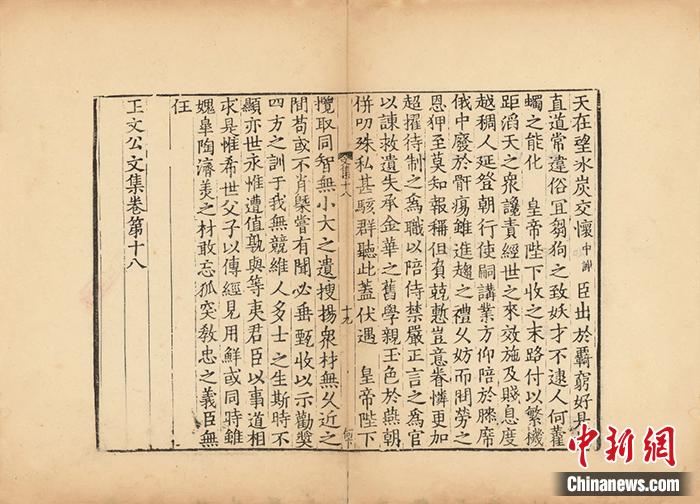 天在望氷炭交懷中謝 臣出於覊窮好是
直道常違俗宜芻狗之致妖才不逮人何藿
蠋之能化 皇帝陛下收之末路付以繁機
距滔天之衆讒責經世之來效施及賤息度
越稠人延登朝行使嗣講業方仰陪於滕席
俄中廢於骭瘍雖進趨之禮久妨而問勞之
恩狎至莫知報稱但負兢慙豈意眷憐更加
超擢待制之爲職以陪侍禁嚴正言之爲官
以諫救遺失承金華之舊學親玉色於燕朝
併叨殊私甚駭群聽此蓋伏遇 皇帝陛下
文集十八
十九
攬取同智無小大之遺搜揚衆材無久近之
間苟或不肖槩嘗有聞必垂甄收以示勸奬
四方之訓于我無競維人多士之生斯時不
顯亦世永惟遭值孰與等夷君臣以事道相
求是惟希世父子以傳經見用鮮或同時雖
媿皐陶濟羙之材敢忘狐突敎忠之義臣無
任
王文公文集卷第十八
中新网
Chinanews.com